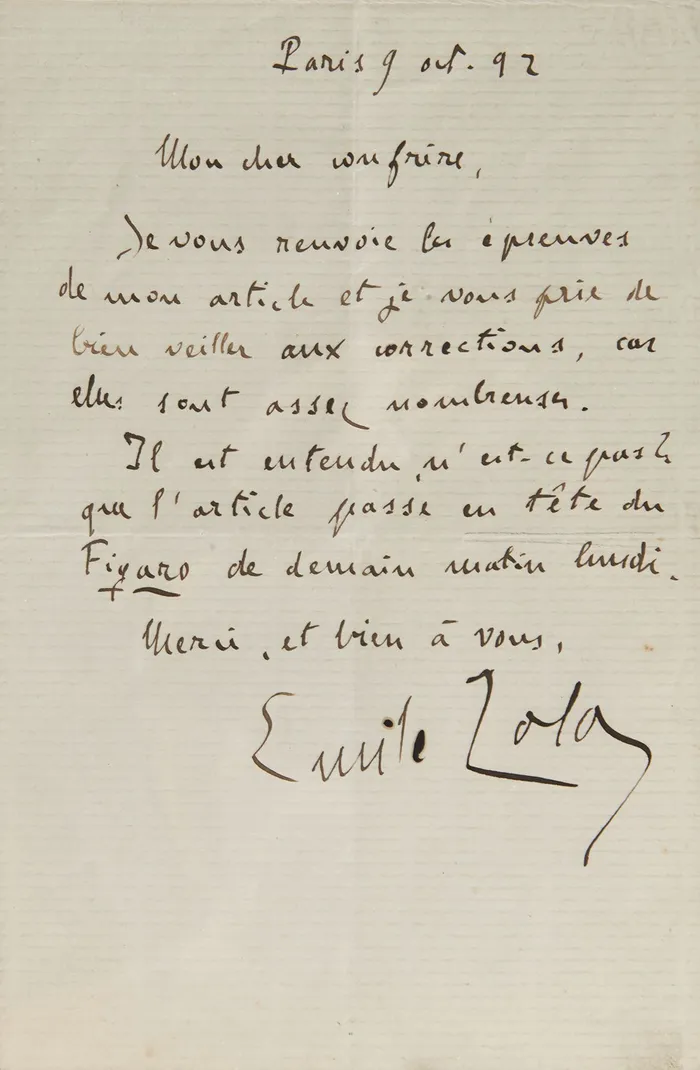 Paris 9 oct. 92
Mon cher confrère,
Je vous renvoie les épreuves
de mon article et je vous prie de
bien veiller aux corrections, car
elles sont assez nombreuses.
Il est entendu, n'est-ce pas?
que l'article passe en tête du
Figaro de demain matin lundi.
Merci, et bien à vous,
Emile Zola